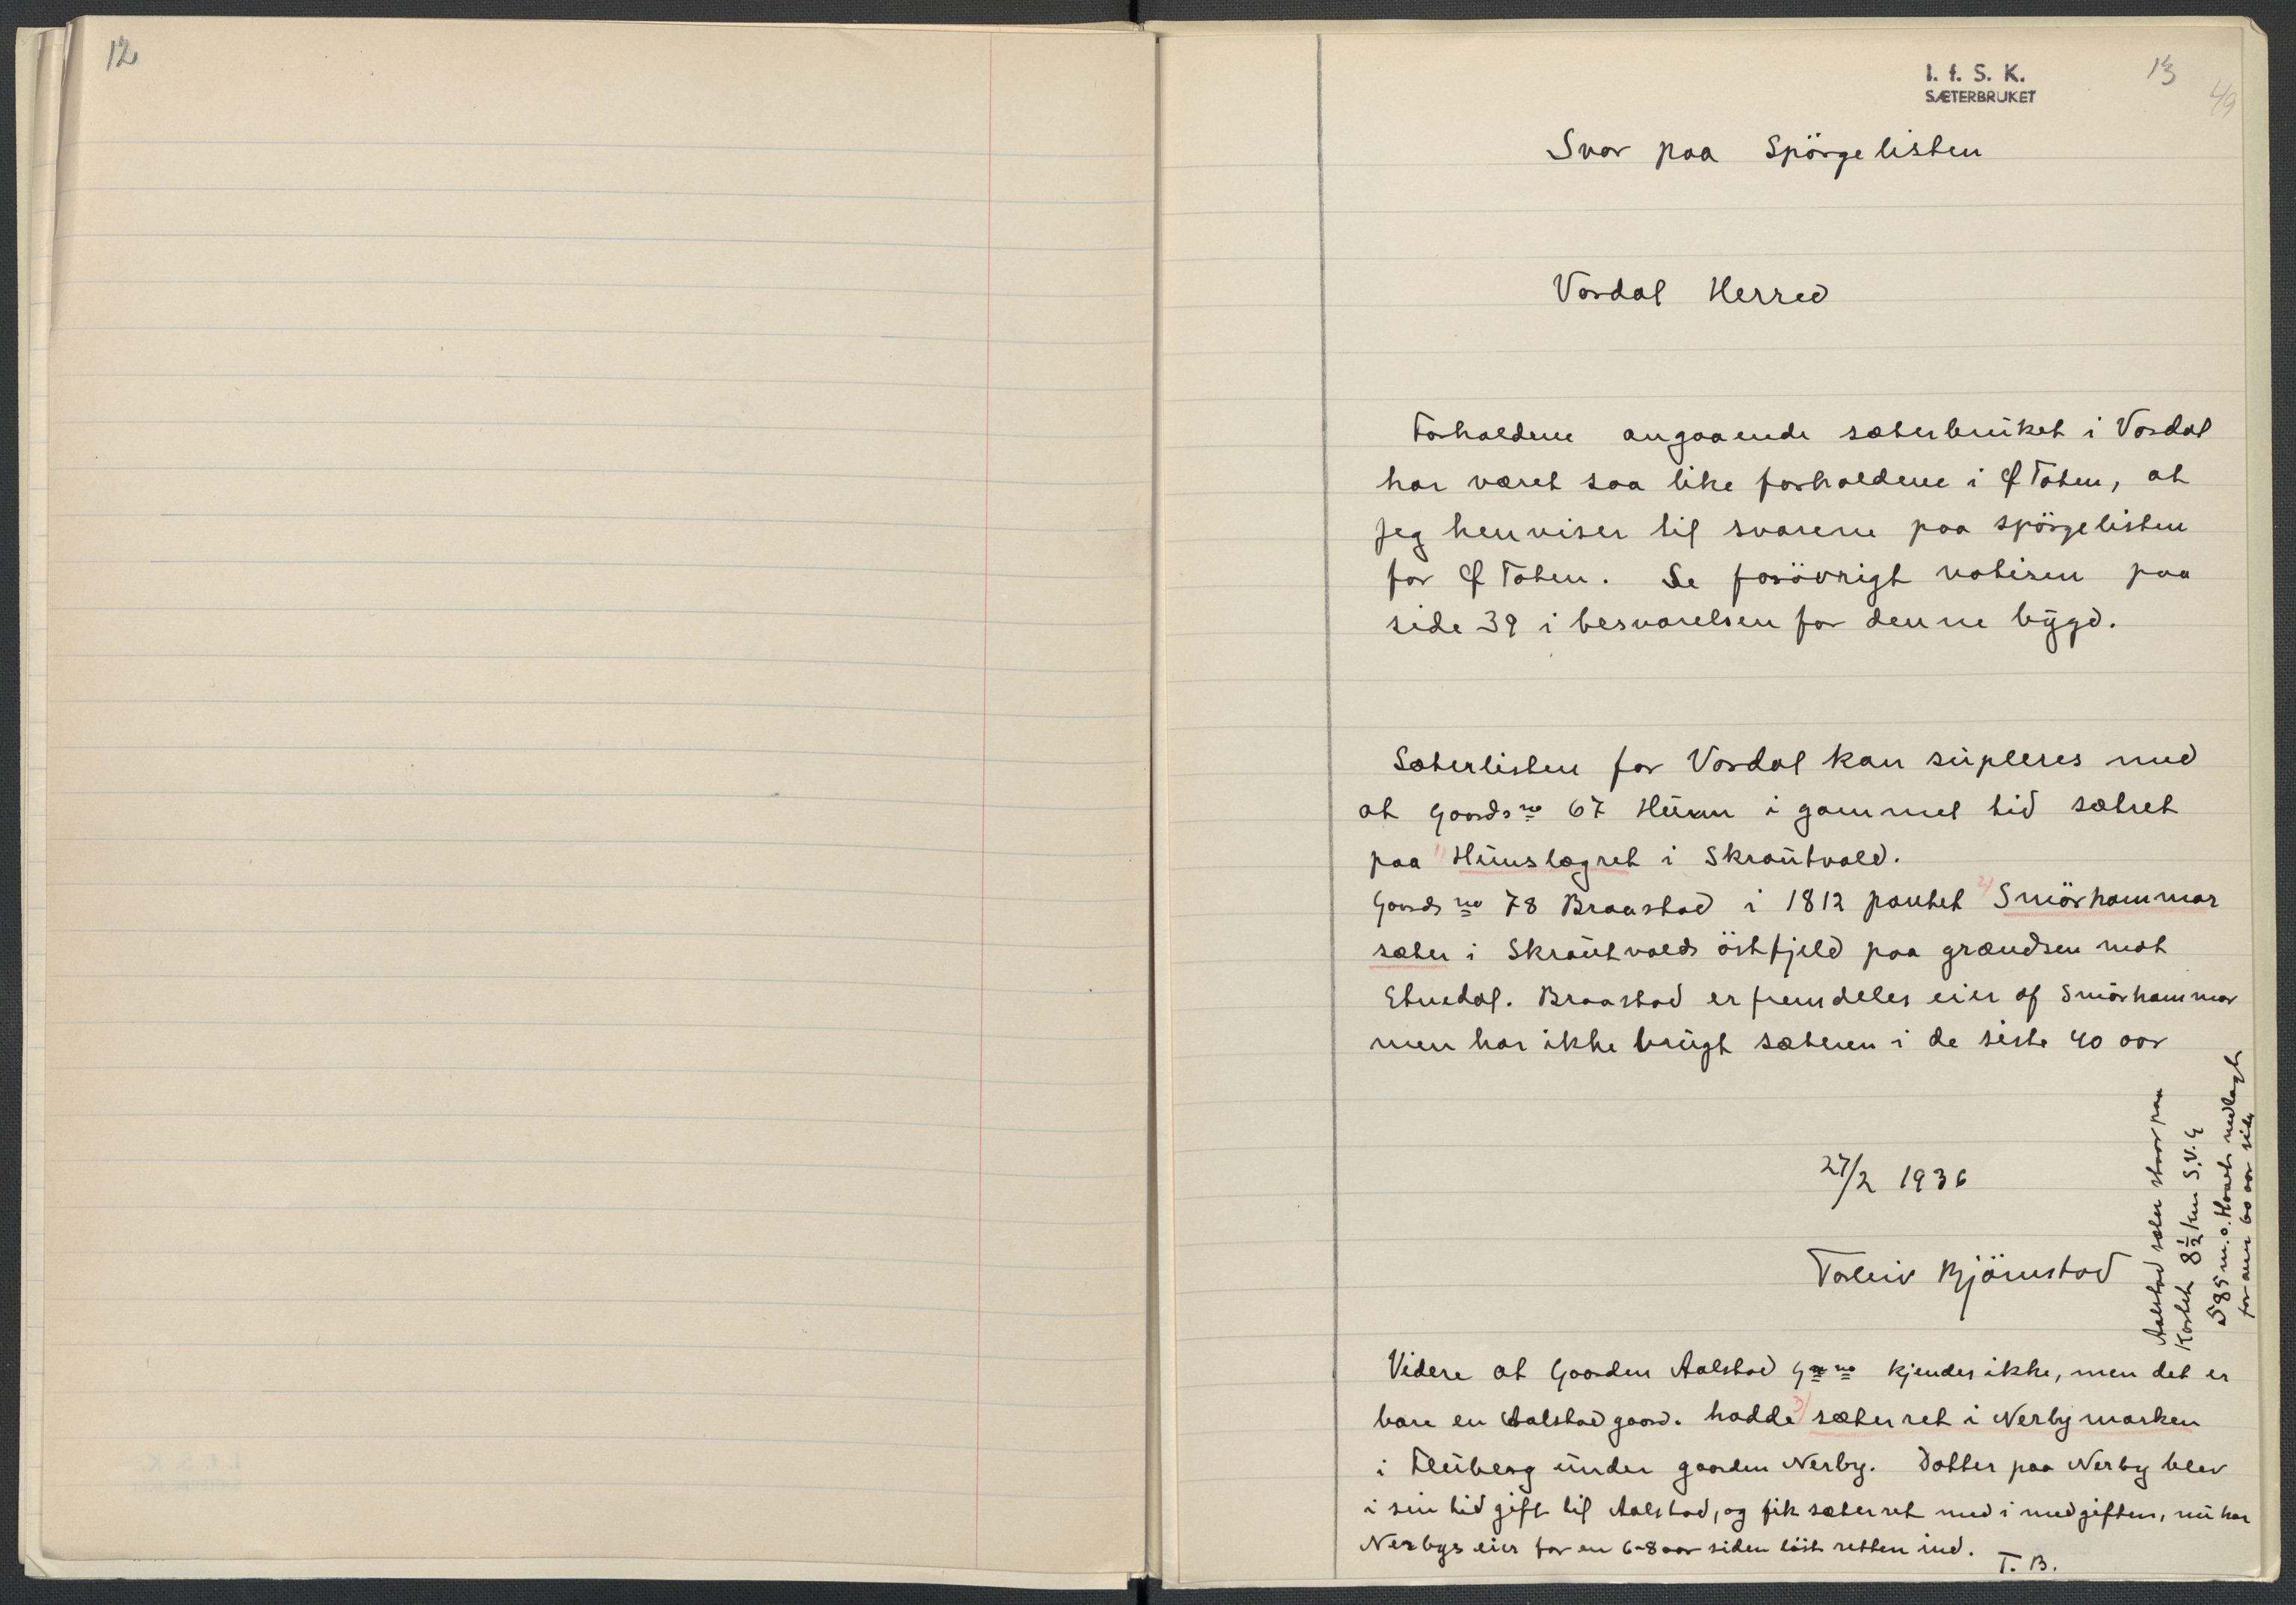 12
I. f. S. K.
SÆTERBRUKET
13
49
Svar paa Spörgelisten
Vardal Herred
Forholdene angaaende sæterbruket i Vardal
har været saa like forholdene i Ø Toten, at
jeg henviser til svarene paa spörgelisten
for Ø Toten. Se forövrigt notisen paa
side 39 i besvarelsen for denne bygd.
Sæterlisten for Vardal kan supleres med
at Gaards no 67 Hunn i gammel tid sætret
paa 1) Hunslægret i Skrautvald.
Gaards no 78 Braastad i 1812 pantet 2) Smörhammar
sæter i Skrautvalds östfjeld paa grændsen mot
Etnedal. Braastad er fremdeles eier af Smörhammar
men har ikke brugt sæteren i de siste 40 aar
27/2 1936
Torleiv Björnstad
Aalstad sæter staar paa
Kartet 8 1/2 km S.V. G
585 m.o. Havet nedlagt
for omr 60 aar siden
Videre at Gaarden Aalstad G no kjendes ikke, men det er
bare en Aalstad gaard. hadde 3) sæterret i Nerbymarken
i Fluberg under gaarden Nerby. Datter paa Nerby blev
i sin tid gift til Aalstad, og fik sæterret med i medgiften, nu har
Nerbys eier for en 6-8 aar siden löst retten ind.
T. B.